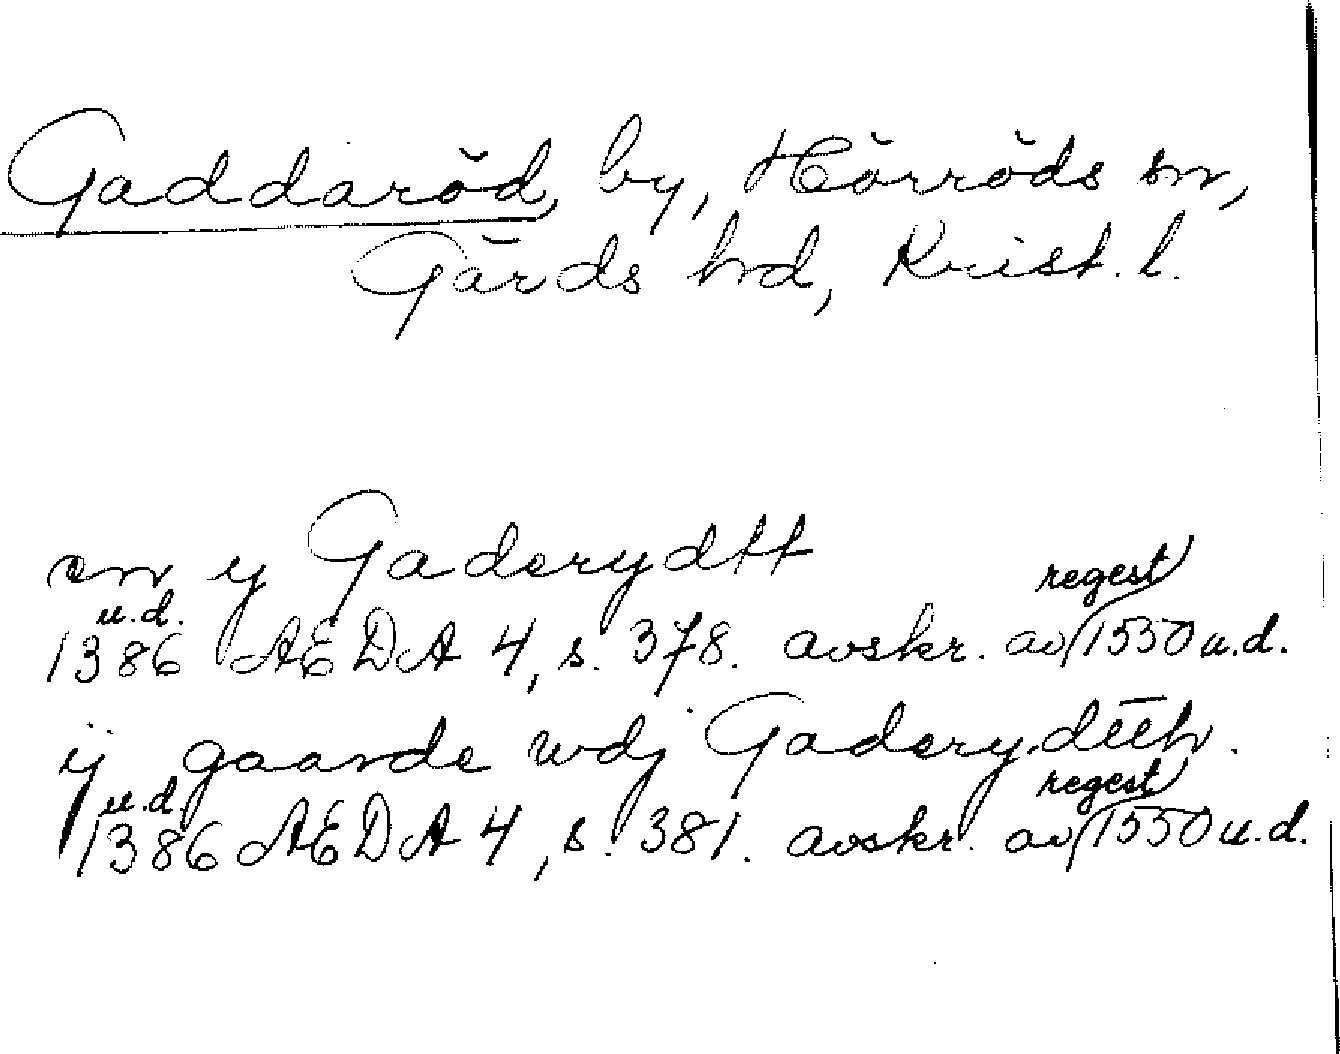 Gaddaröd, by, Hörröds sn,
Gärds hd, Krist. l.
en y Gaderydtt
1386 u.d. AEDA 4, s. 378. avskr. av regest 1550 u.d.
ij gaarde wdj Gaderydeth.
1386 u.d. AEDA 4, s. 381. avskr. av regest 1550 u.d.